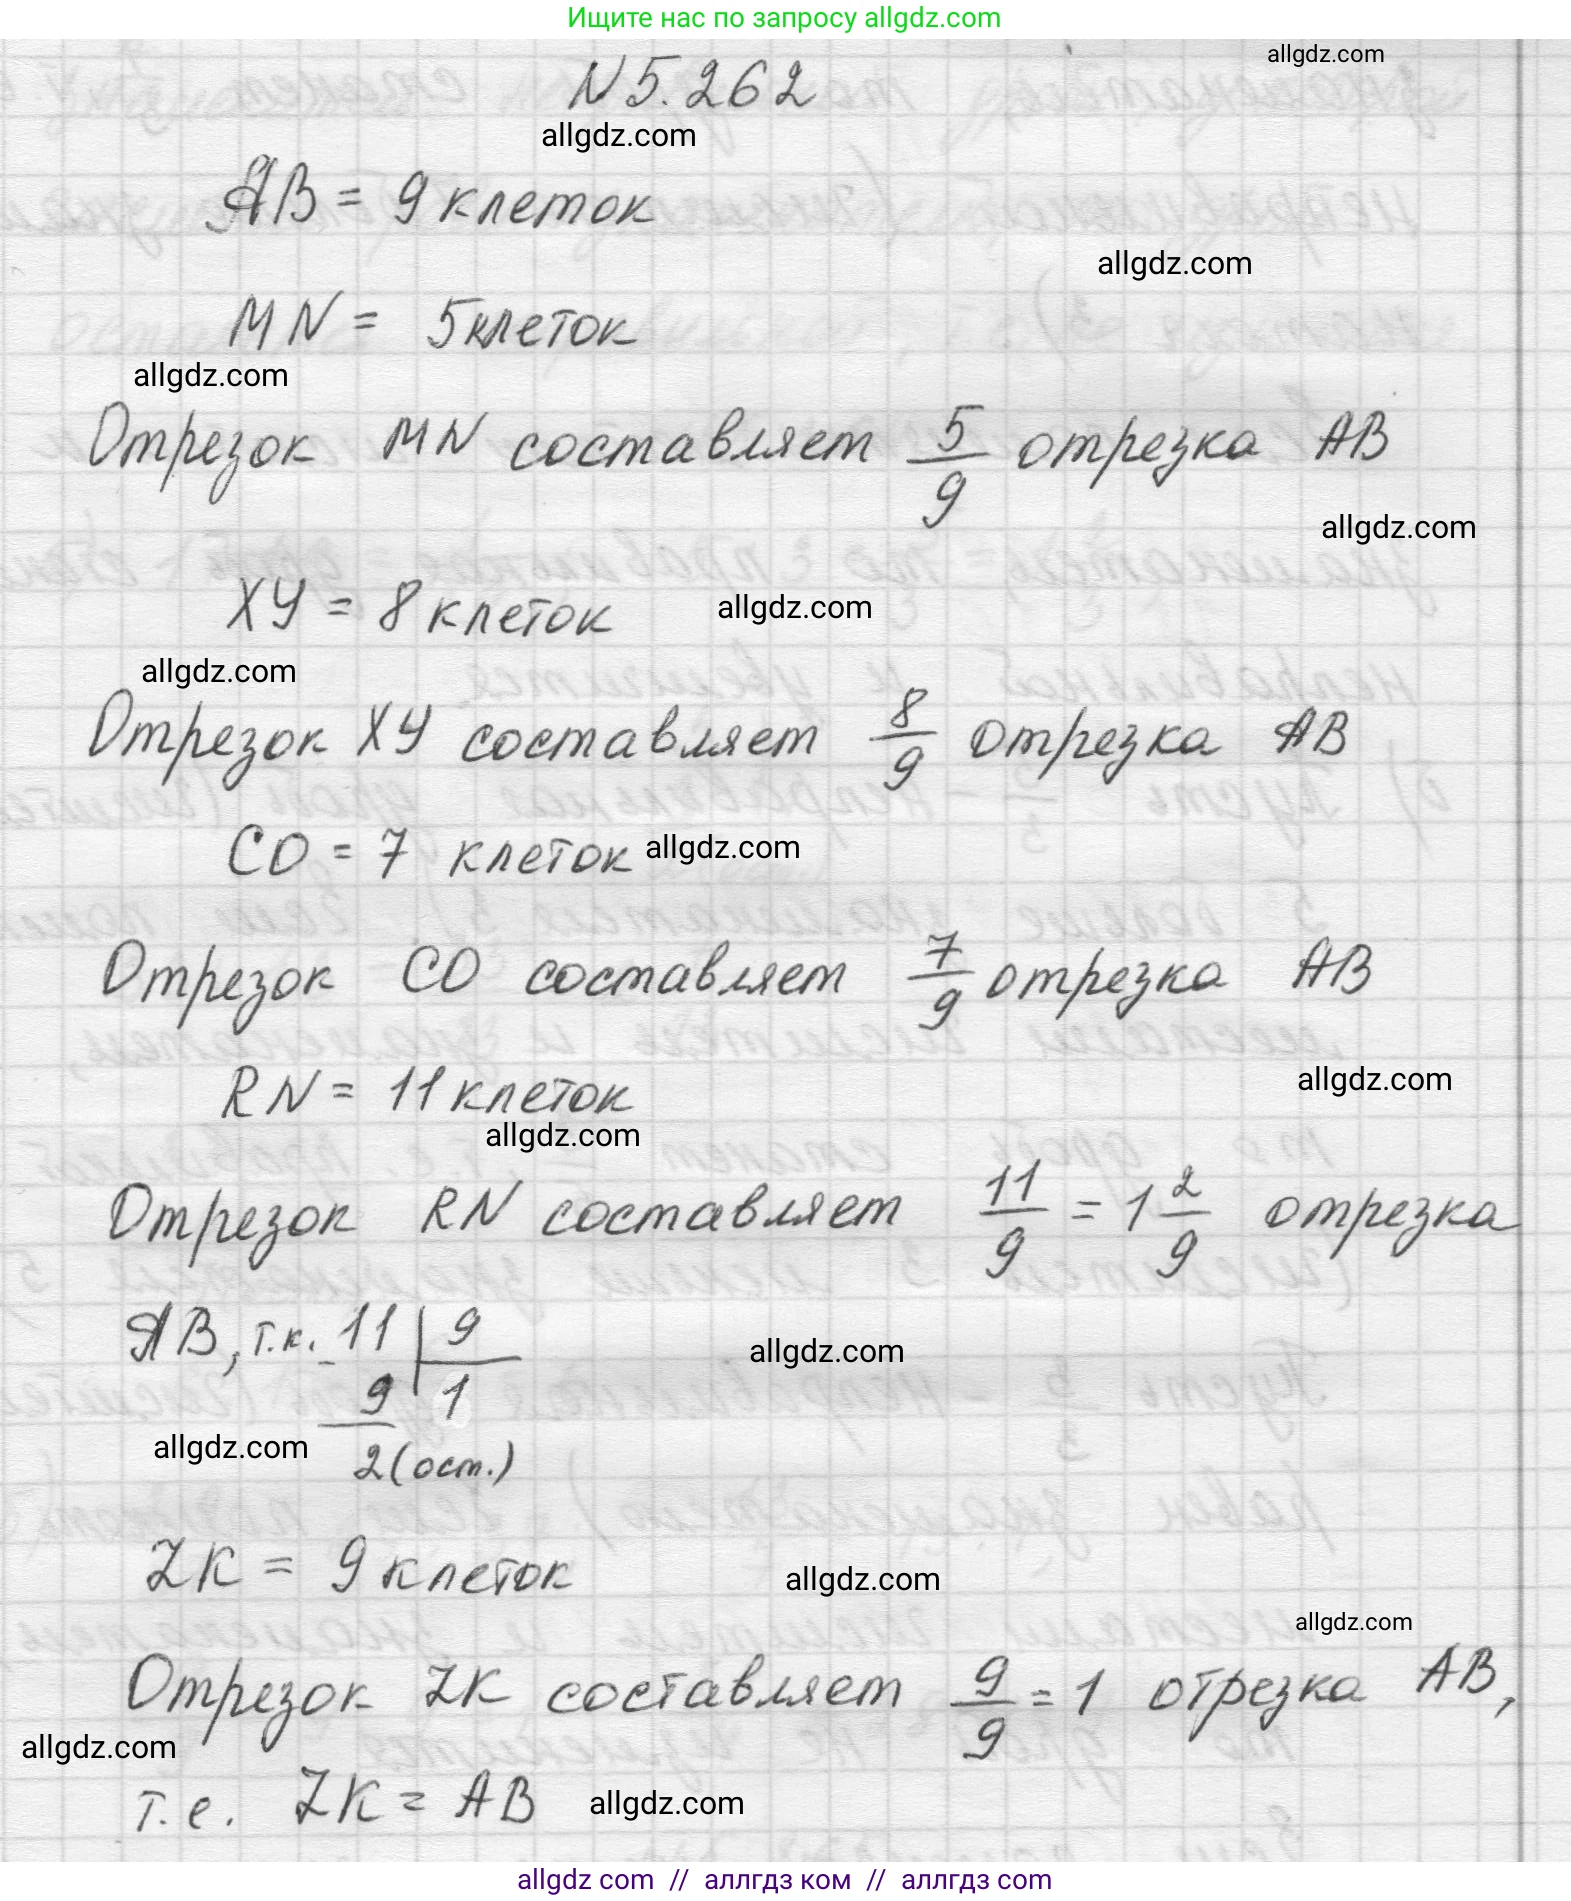 Ищите нас по запросу allgdz.com
allgdz.com
N 5.262
allgdz.com
AB = 9 клеток
allgdz.com
MN = 5 клеток
allgdz.com
Отрезок MN составляет 5/9 отрезка AB
allgdz.com
XY = 8 клеток
allgdz.com
allgdz.com
Отрезок XY составляет 8/9 отрезка AB
CO = 7 клеток
allgdz.com
Отрезок CO составляет 7/9 отрезка AB
allgdz.com
RN = 11 клеток
allgdz.com
Отрезок RN составляет 11/9 = 1 2/9 отрезка
AB, т.к. 11 | 9
allgdz.com
9 | 1
allgdz.com
2 (ост.)
ZK = 9 клеток
allgdz.com
allgdz.com
Отрезок ZK составляет 9/9 = 1 отрезка AB,
allgdz.com
т.е. ZK = AB
allgdz.com
allgdz.com // аллгдз ком // аллгдз com